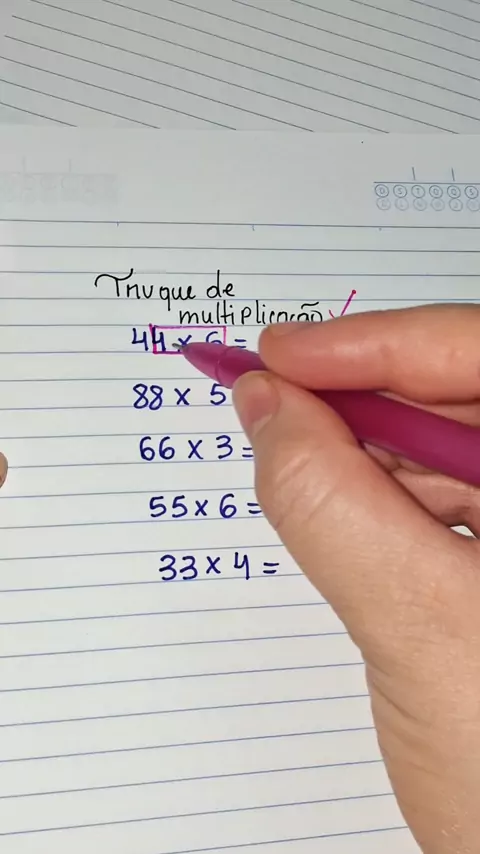 Truque de
multiplicação
44 x 6 =
88 x 5
66 x 3 =
55 x 6 =
33 x 4 =